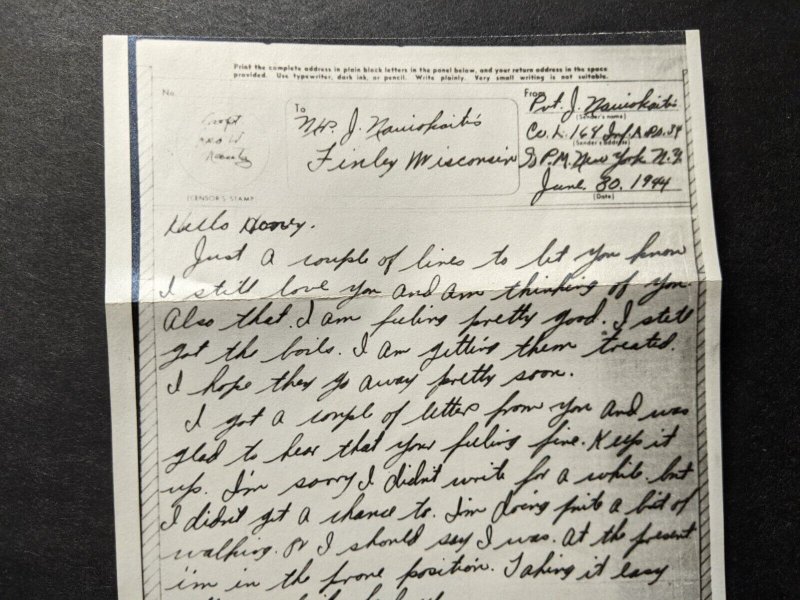 Print the complete address in plain block letters in the panel below, and your return address in the space
provided. Use typewriter, dark ink, or pencil. Write plainly. Very small writing is not suitable.
No.
To
From
J.
Finley Wisconsin
Pvt. J.
(Sender's name)
Co. L. 164 Inf. A.P.O.
(Sender's address)
P.M. New York N.Y.
June 30. 1944
(Date)
(CENSOR'S STAMP)
Hello Honey.
Just a couple of lines to let you know
I still love you and am thinking of you.
Also that I am feeling pretty good. I still
got the boils. I am getting them treated.
I hope they go away pretty soon.
I got a couple of letters from you and was
glad to hear that your feeling fine. Keep it
up. I'm sorry I didn't write for a while but
I didn't get a chance to. I'm doing quite a bit of
walking. Or I should say I was. At the present
i'm in the prone position. Taking it easy